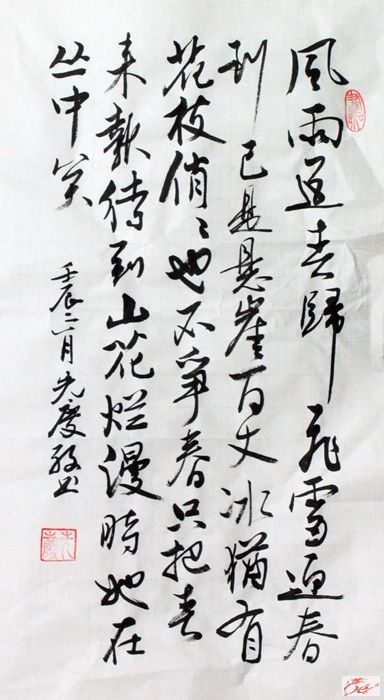 風雨送春歸飛雪迎春
到已是悬崖百丈冰猶有
花枝俏〻也不爭春只把春
来報待到山花烂漫時她在
丛中笑
壬辰二月光慶书